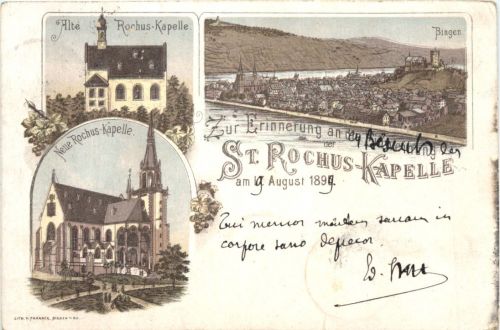 Alte Rochus-Kapelle
Bingen
Neue Rochus-Kapelle.
Zur Erinnerung an den
der
St. Rochus-Kapelle
am 19 August 1899.
Tui memor mentem sanam in
corpore sano deprecor.